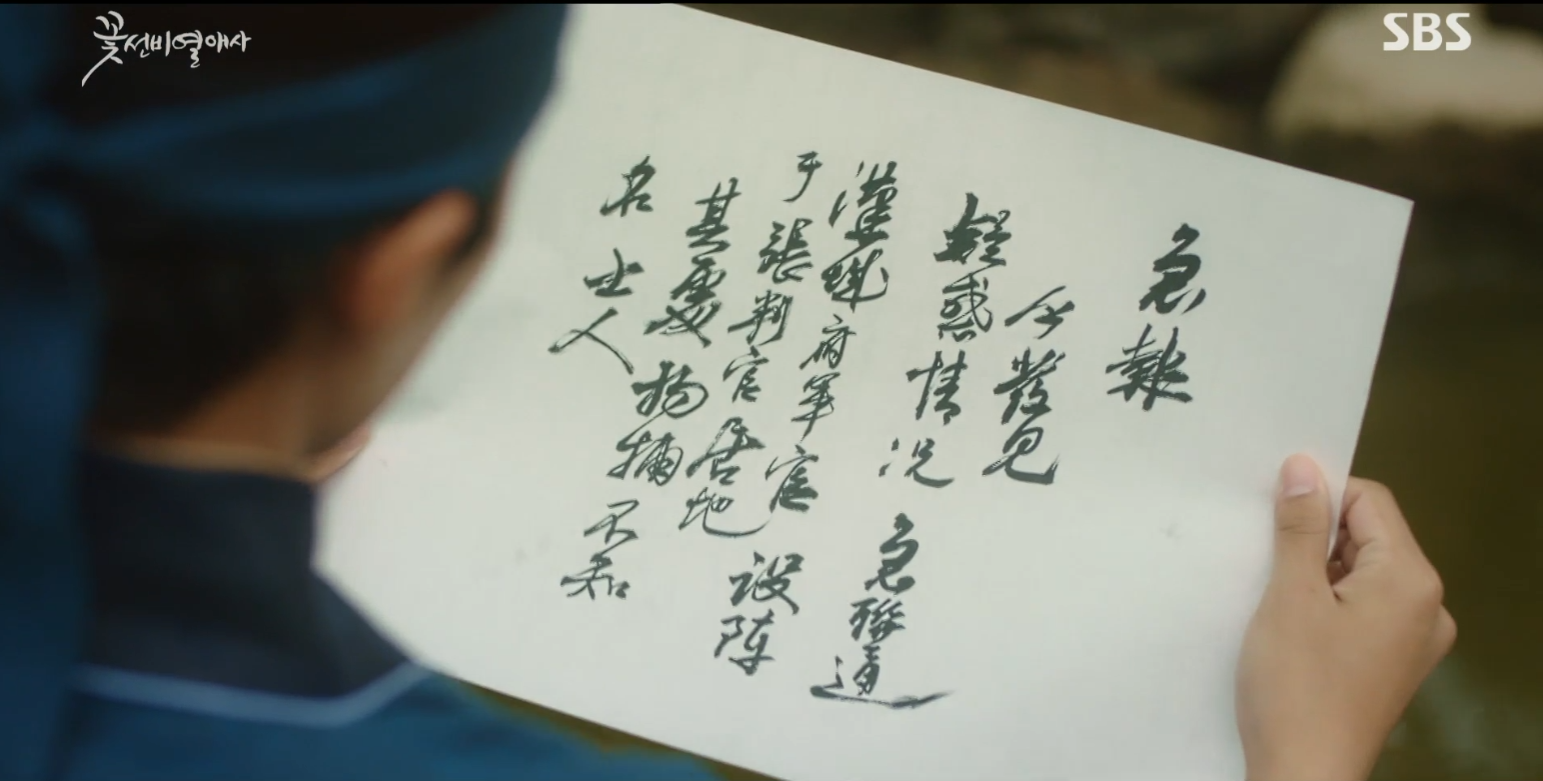 꽃선비열애사
SBS
急報
今發見
疑惑情况急聯通
漢城府軍官設陣
于張判官居地
其處拘捕不知
名士人